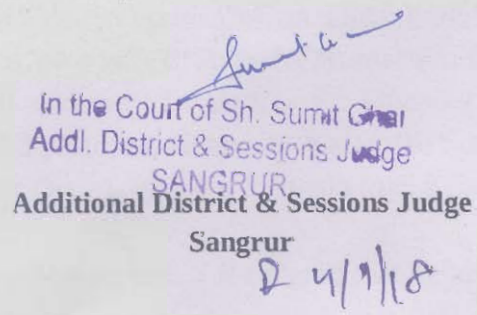 In the Court of Sh. Sumit Ghai
Addl. District & Sessions Judge
SANGRUR
Additional District & Sessions Judge
Sangrur
4/9/18